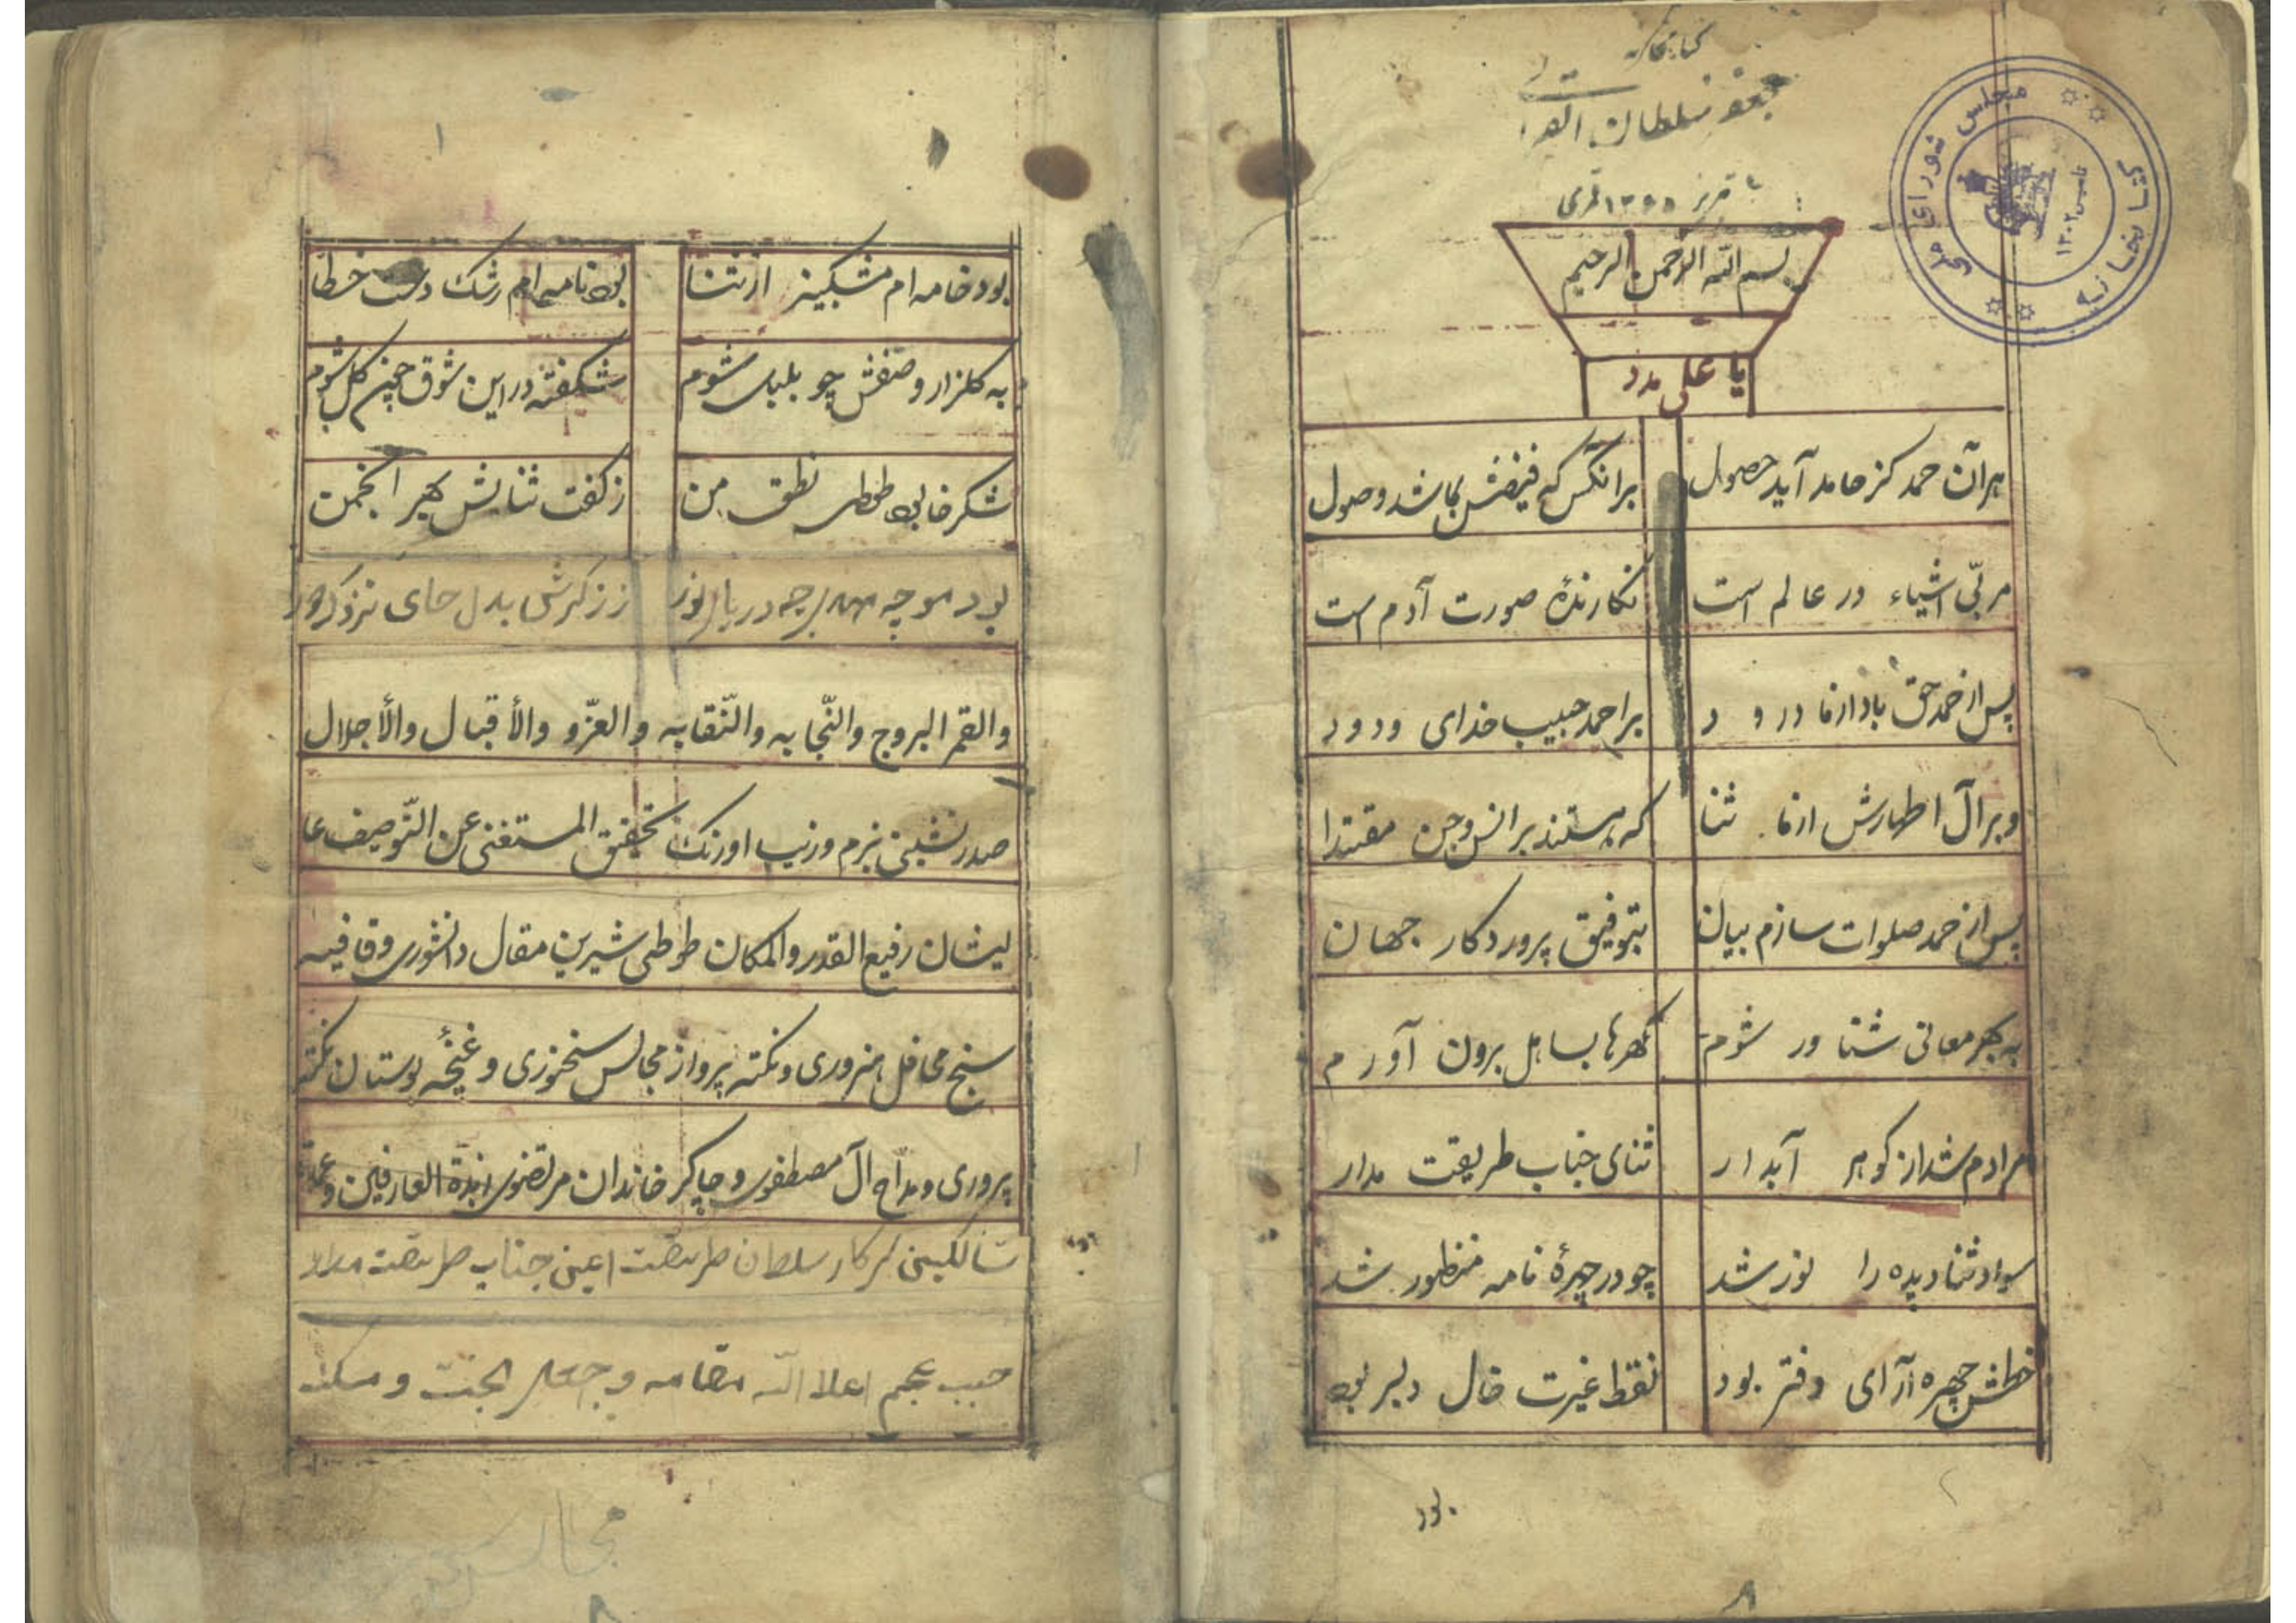 کتابخانه
جعفر سلطان القرائی
تبریز ۱۳۶۵ قمری
کتابخانه مجلس شورای ملی
تاسیس ۱۳۰۲
بسم الله الرحمن الرحیم
یا علی مدد
هرآن حمد کز حامد آید حصول برانکس که فیضش بماشد وصول
مربّی اشیاء در عالم است نکارندهٔ صورت آدم است
پس از حمد حق باد از ما درود بر احمد حبیب خدای ودود
و بر آل اطهارش از ما ثنا که هستند بر انس و جن مقتدا
پس از حمد صلوات سازم بیان بتوفیق پروردکار جهان
به بحر معانی شناور شوم کهرها بساحل برون آورم
مرادم شد از کوهر آبدار ثنای جناب طریقت مدار
سواد ثنا دیده را نور شد چو در چهرهٔ نامه منظور شد
خطش چهره آرای دفتر بود نقط غیرت خال دلبر بود
بود
۸
۱
بود خامه ام مشکبیز از ثنا بود نامه ام رشک دشت خطا
به کلزار وصفش چو بلبل شوم شکفته در این شوق چون کل شوم
شکرخا بود طوطی نطق من ز کفت ثنایش بهر انجمن
بود موجه در یای نور ز ذکرش بدل جای
والقمر البروج والنّجابه والنّقابه والعزّو والأقبال والأجلال
صدر نشین بزم وزیب اورنک تحقیق المستغنی عن التّوصیف عا
لیشان رفیع القدر والمکان طوطی شیرین مقال دانشوری وقافیه
سنج محافل هنروری ونکته پرداز مجالس سخنوری و غنچهٔ بوستان نکته
پروری ومدّاح آل مصطفوی و چاکر خاندان مرتضوی زبدة العارفین وعمدة
سالکین سرکار سلطان طریقت اعنی جناب طریقت مدار
حبیب عجم اعلا الله مقامه و جعل الجنّت و مسکنه
مجالس
۸